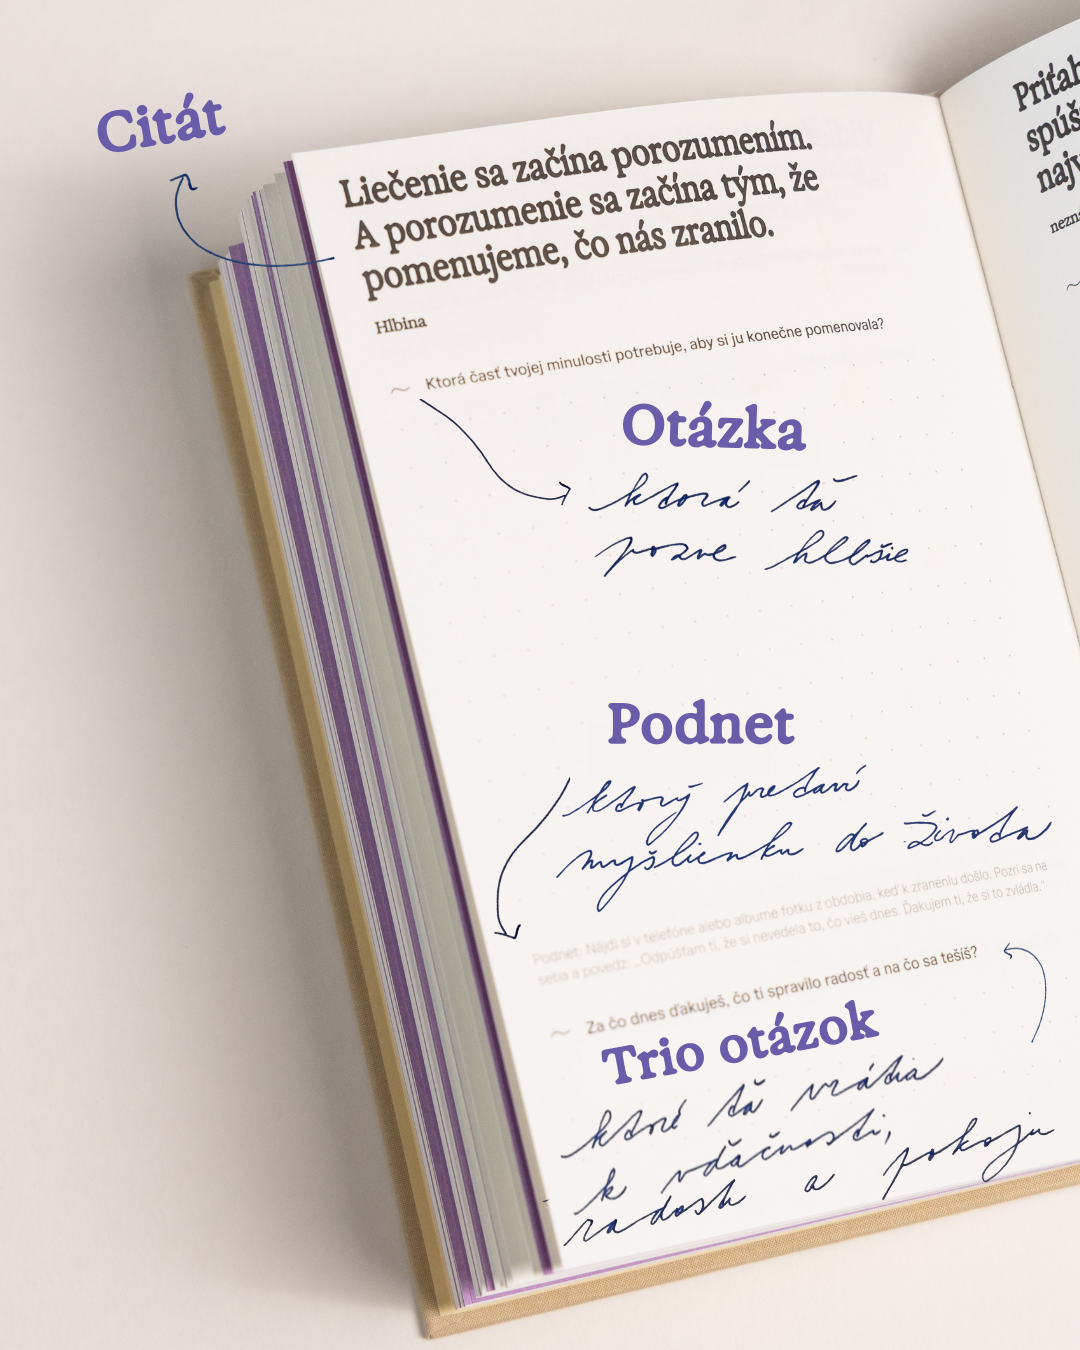 Citát
Liečenie sa začína porozumením.
A porozumenie sa začína tým, že
pomenujeme, čo nás zranilo.
Hlbina
~ Ktorá časť tvojej minulosti potrebuje, aby si ju konečne pomenovala?
Otázka
ktorá ťa
pozve hlbšie
Podnet
ktorý pretaví
myšlienku do života
Podnet: Nájdi si v telefóne alebo albume fotku z obdobia, keď k zraneniu došlo. Pozri sa na
seba a povedz: „Odpúšťam ti, že si nevedela to, čo vieš dnes. Ďakujem ti, že si to zvládla.“
~ Za čo dnes ďakuješ, čo ti spravilo radosť a na čo sa tešíš?
Trio otázok
ktoré ťa vrátia
k vďačnosti,
radosti a pokoju
Priťah
spúš
najv
nezn